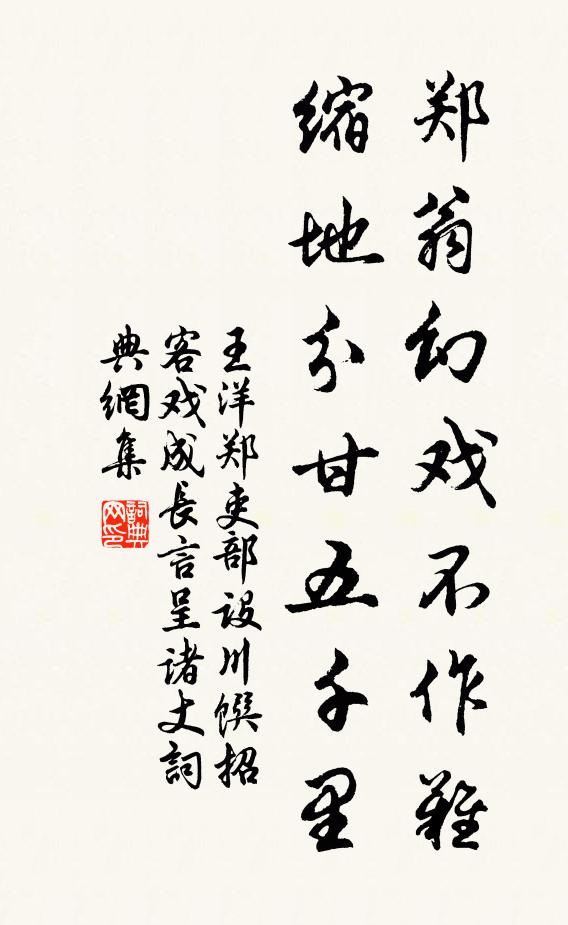 郑翁幻戏不作難
缩地分甘五千里
王洋郑吏部设川馔招
客戏成長言呈诸丈詞
典網集
詞典网印